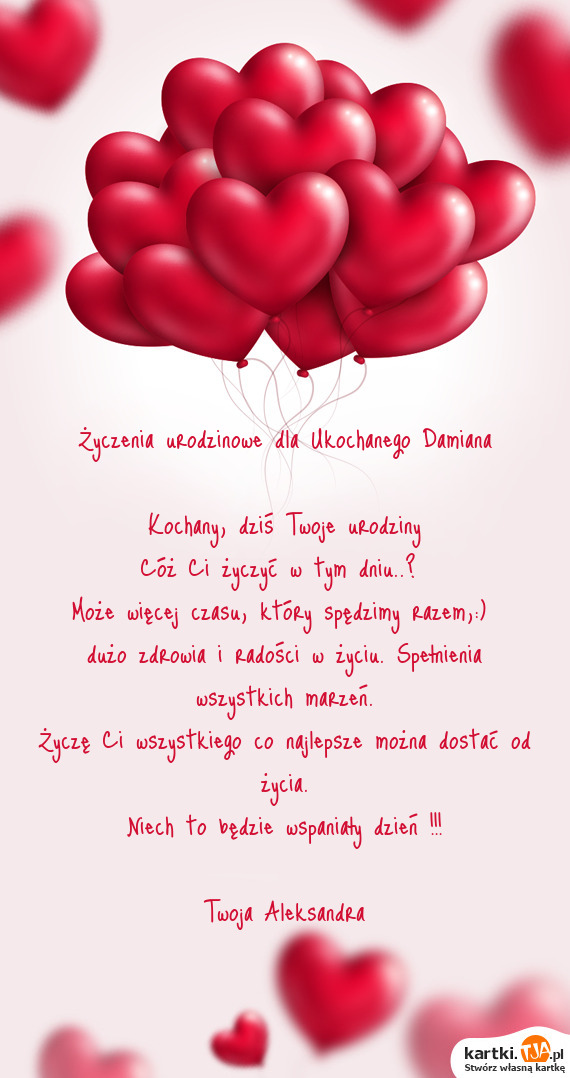 Życzenia urodzinowe dla Ukochanego Damiana
Kochany, dziś Twoje urodziny
Cóż Ci życzyć w tym dniu..?
Może więcej czasu, który spędzimy razem,:)
dużo zdrowia i radości w życiu. Spełnienia
wszystkich marzeń.
Życzę Ci wszystkiego co najlepsze można dostać od
życia.
Niech to będzie wspaniały dzień !!!
Twoja Aleksandra
kartki.TJA.pl
Stwórz własną kartkę